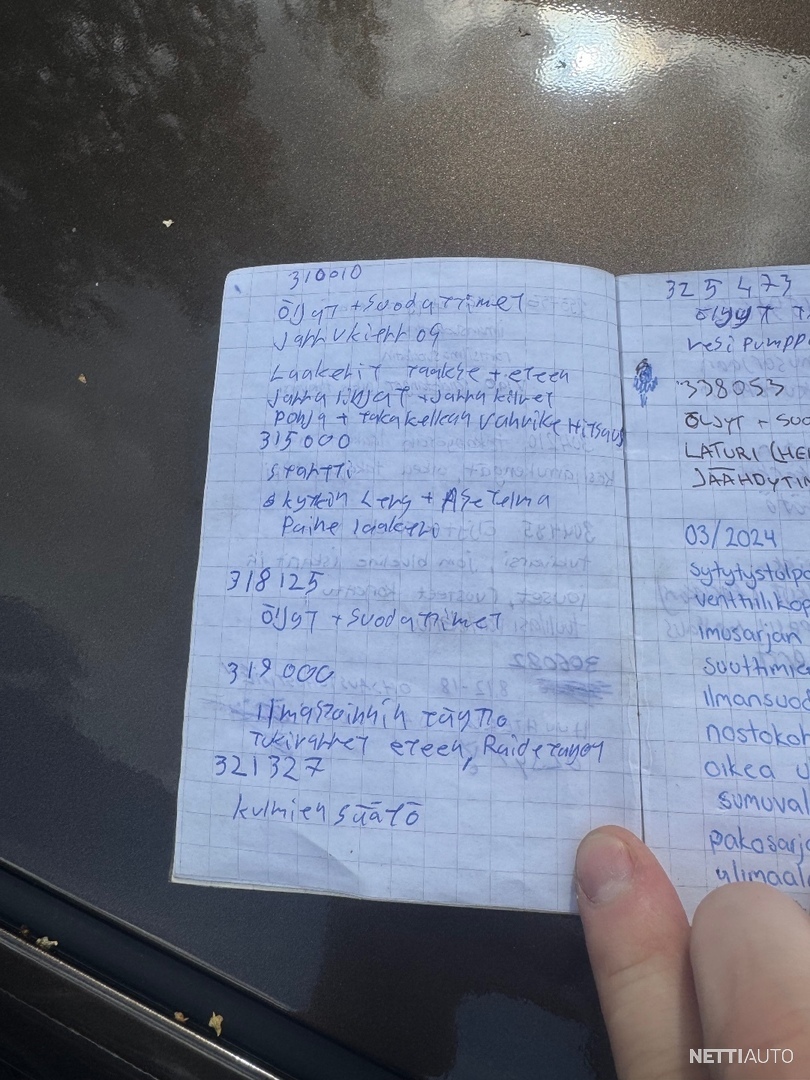 310010
öljyt + suodattimet
jarrukierrog
Laakerit taakse + eteen
jarru linjat + jarru kilvet
pohja + takakelkan vahvike Hitsaus
315000
startti
kytkin Levy + Asetelma
Paine laakeri
318125
öljyt + suodattimet
319000
ilmastoinnin täyttö
Tukivarret eteen, Raidetangot
321327
kulmien säätö
325 473
öljyt
vesi pumpp
338053
ÖLJYT + SUO
LATURI (HE
JÄÄHDYTIN
03/2024
sytytystolp
venttiilikop
imusarjan
suuttimie
ilmansuod
nostokoh
oikea
sumuval
pakosarj
ylimaal
NETTIAUTO